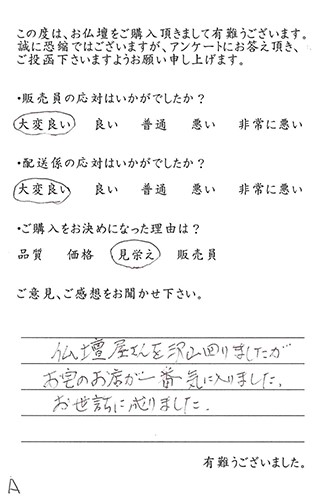 この度は、お仏壇をご購入頂きまして有難うございます。
誠に恐縮ではございますが、アンケートにお答え頂き、
ご投函下さいますようお願い申し上げます。
・販売員の応対はいかがでしたか?
大変良い 良い 普通 悪い 非常に悪い
・配送係の応対はいかがでしたか?
大変良い 良い 普通 悪い 非常に悪い
・ご購入をお決めになった理由は?
品質 価格 見栄え 販売員
ご意見、ご感想をお聞かせ下さい。
仏壇屋さんを沢山回りましたが
お宅のお店が一番気に入りました。
お世話に成りました。
有難うございました。
A